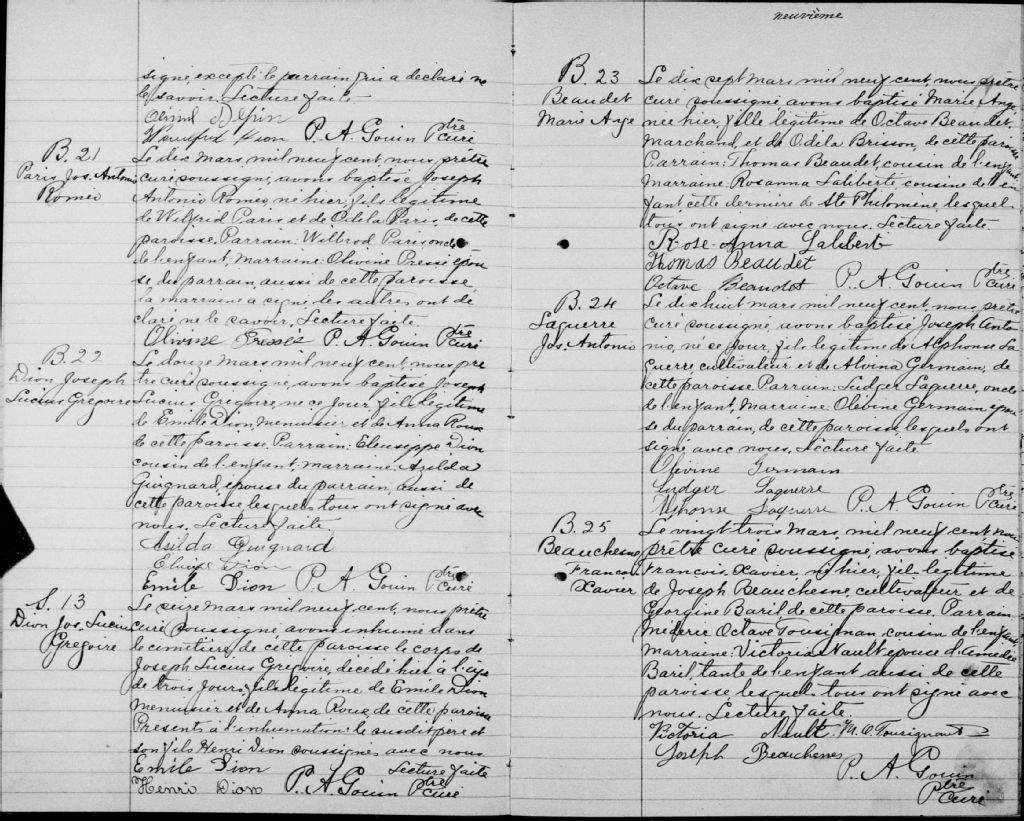 signé, excepté le parrain qui a déclaré ne
le savoir. Lecture faite.
Dion P. A. Gouin Ptre
Curé
B. 21
Paris Jos. Antonio
Roméo
Le dix Mars mil neuf cent, nous, prêtre
curé soussigné, avons baptisé Joseph
Antonio Roméo, né hier, fils légitime
de Wilfrid Paris et de Odila Paris, de cette
paroisse. Parrain: Wilbrod Paris, oncle
de l'enfant, Marraine: Olivine Pressé épou
se du parrain, aussi de cette paroisse,
la marraine a signé, les autres ont dé
claré ne le savoir. Lecture faite.
Olivine Pressée P. A. Gouin Ptre
Curé
B. 22
Dion Joseph
Lucius Grégoire
Le douze Mars mil neuf cent, nous prê
tre curé soussigné, avons baptisé Joseph
Lucius Grégoire, né ce jour, fils légitime
de Emile Dion, Menuisier et de Anna Roux
de cette paroisse. Parrain: Eleusippe Dion
cousin de l'enfant. marraine: Azilda
Guignard, épouse du parrain, aussi de
cette paroisse, lesquels tous ont signé avec
nous. Lecture faite.
Asilda Guignard
Dion
Emile Dion P. A. Gouin Ptre
Curé
S. 13
Dion Jos. Lucius
Grégoire
Le seize mars mil neuf cent, nous, prêtre
curé soussigné, avons inhumé dans
le cimetière de cette paroisse le corps de
Joseph Lucius Grégoire, décédé hier à l'âge
de trois jours, fils légitime de Emile Dion
menuisier et de Anna Roux, de cette paroisse
Présents à l'inhumation: le susdit père et
son fils Henri Dion soussignés avec nous
Emile Dion Lecture faite
Henri Dion P. A. Gouin Ptre
Curé
neuvième
B. 23
Beaudet
Marie Ange
Le dix sept mars mil neuf cent nous, prêtre
curé soussigné avons baptisé Marie Ange
née hier, fille légitime de Octave Beaudet,
Marchand, et de Odila Brisson, de cette paroisse
Parrain: Thomas Beaudet, cousin de l'enfant
Marraine: Rosanna Laliberté, cousine de l'en
fant, cette dernière de Ste Philomène, lesquels
tous ont signé avec nous. Lecture faite
Rose-Anna Laliberté
Thomas Beaudet
Octave Beaudet P. A. Gouin Ptre
Curé
B. 24
Laguerre
Jos. Antonio
Le dix huit mars mil neuf cent, nous, prêtre
curé soussigné, avons baptisé Joseph Anto
nio, né ce jour, fils légitime de Alphonse La
guerre, cultivateur et de Alvina Germain, de
cette paroisse. Parrain: Ludger Laguerre, oncle
de l'enfant, Marraine: Olévine Germain, épou
se du parrain, de cette paroisse, lesquels ont
signé avec nous. Lecture faite
Olivine Germain
Ludger Laguerre
Alphonse Laguerre P. A. Gouin Ptre
Curé
B. 25
Beauchesne
François
Xavier
Le vingt trois Mars, mil neuf cent nous
prêtre curé soussigné, avons baptisé
François Xavier, né hier, fils légitime
de Joseph Beauchesne, cultivateur et de
Georgine Baril de cette paroisse. Parrain
Méderic Octave Tousignan, cousin de l'enfant,
marraine: Victoria Nault épouse d'Amédée
Baril, tante de l'enfant aussi de cette
paroisse lesquels tous ont signé avec
nous. Lecture faite.
Victoria Nault. M. O. Tourignant
Joseph Beauchene
P. A. Gouin
Ptre
Curé